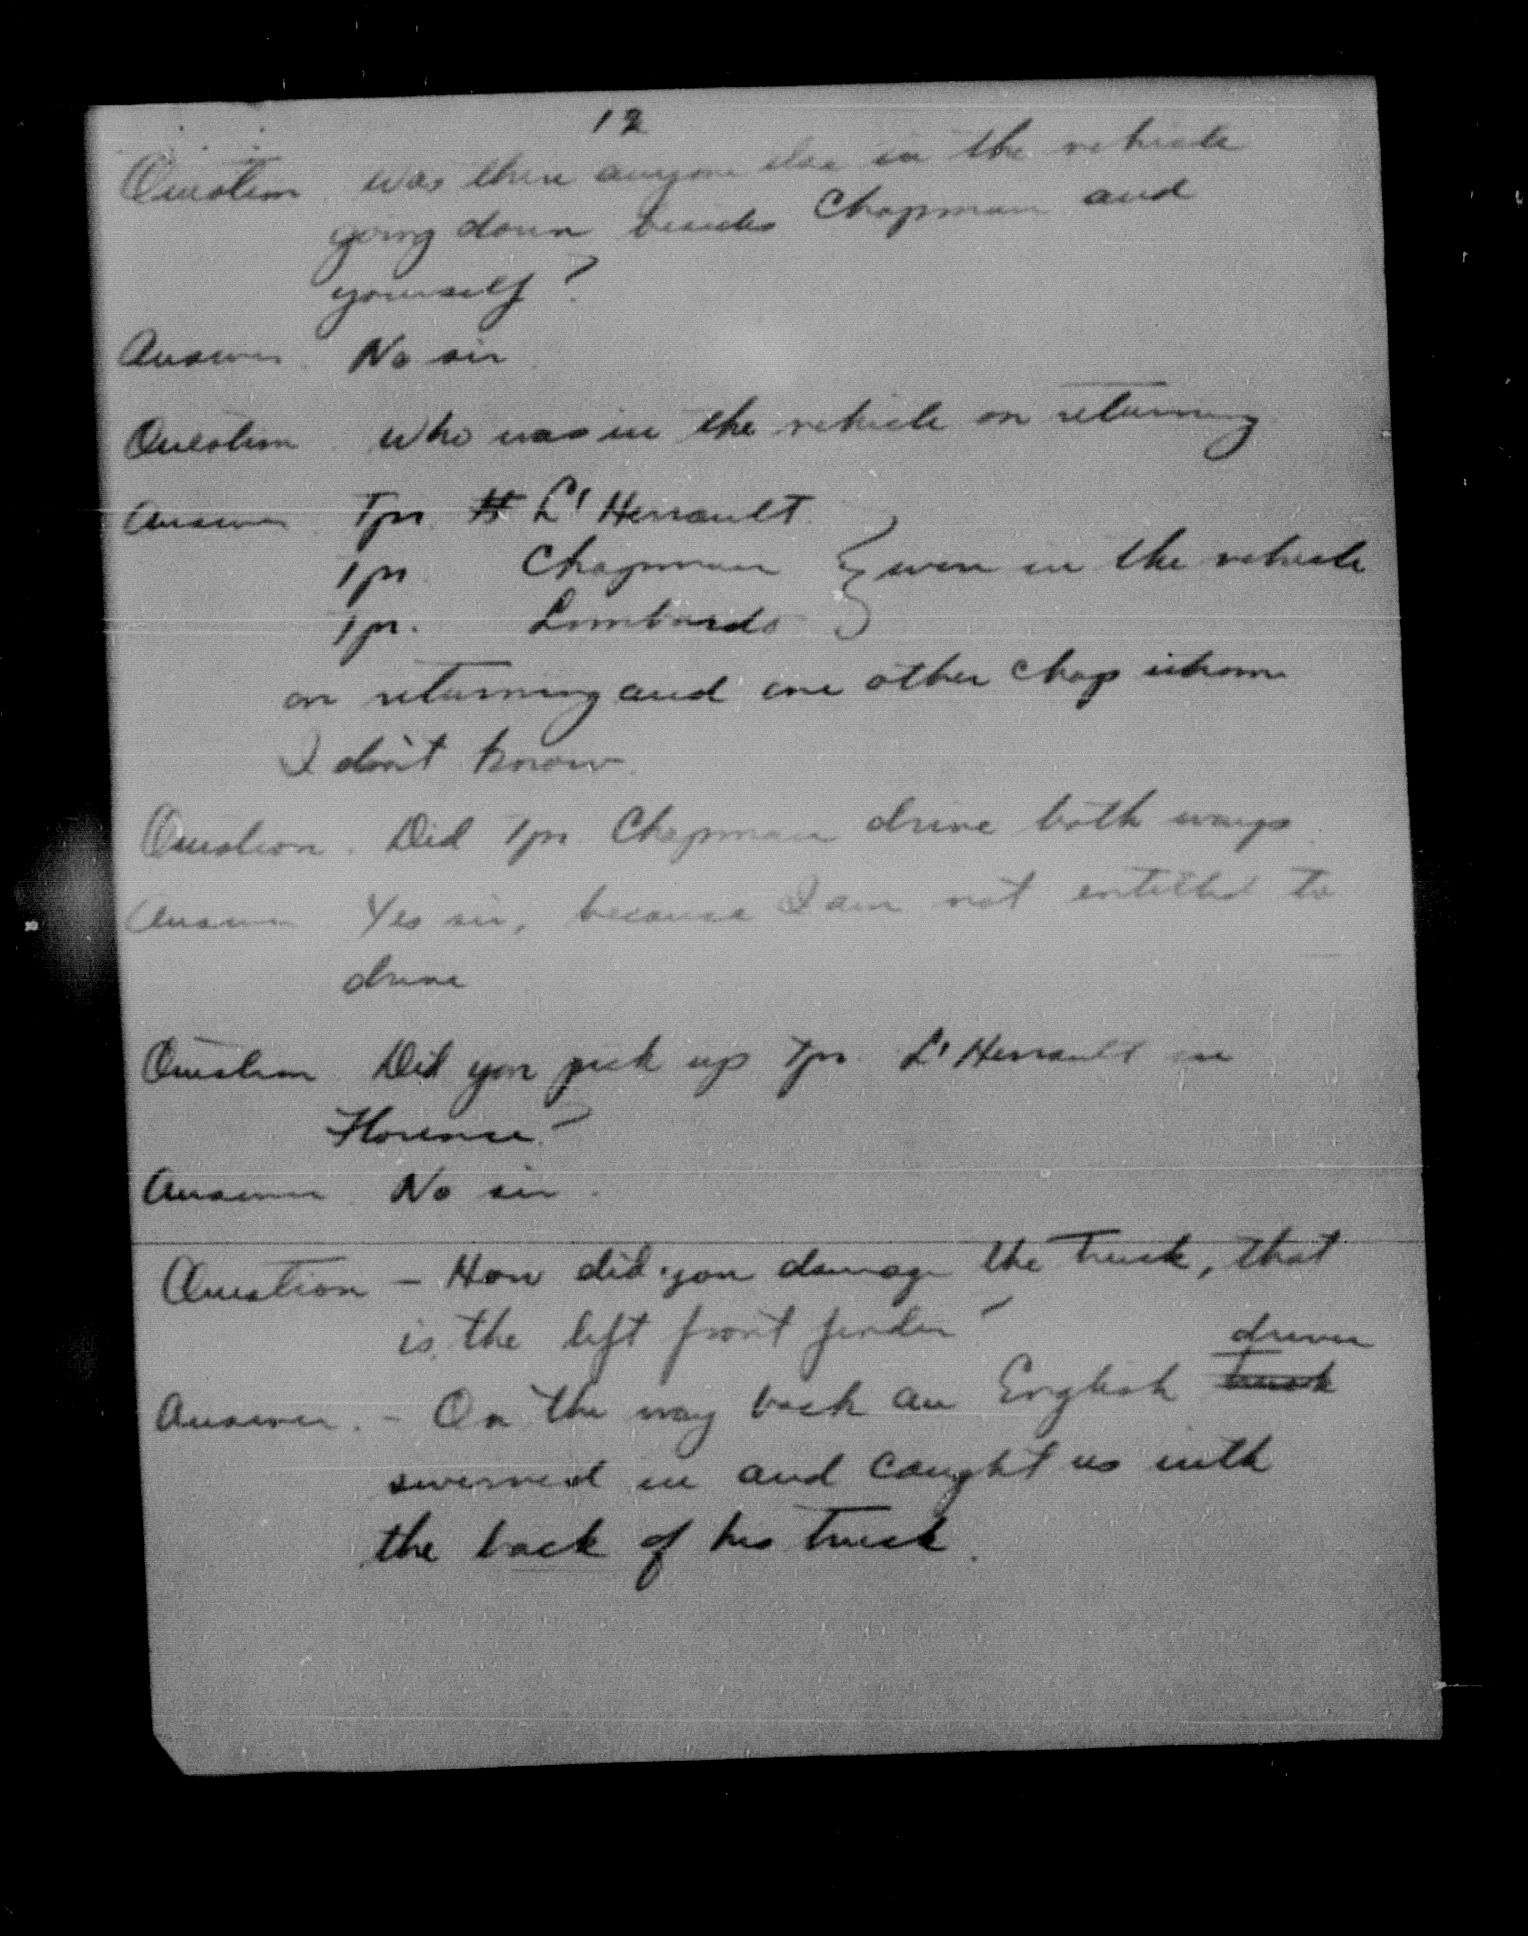 12
Question was there anyone else in the vehicle
going down besides Chapman and
yourself?
Answer. No sir.
Question. Who was in the vehicle on returning
Answer Tpr. L'Herrault.
Tpr Chapman } were in the vehicle
Tpr. Lombards
on returning and one other chap whom
I don't know.
Question. Did Tpr. Chapman drive both ways.
Answer Yes sir, because I am not entitled to
drive
Question Did you pick up Tpr. L'Herrault in
Florence?
Answer. No sir.
Question - How did you damage the truck, that
is, the left front fender?
driver
Answer. - On the way back an English truck
swerved in and caught us with
the back of his truck.